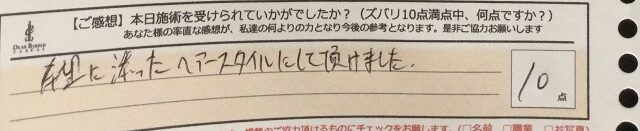 【ご感想】本日施術を受けられていかがでしたか？（ズバリ10点満点中、何点ですか？）
あなた様の率直な感想が、私達の何よりの力となり今後の参考となります。是非ご協力お願いします
希望に添ったヘアースタイルにして頂けました。
10
点
のご協力頂けるものにチェックをお願いします。(□名前 □職業 □お写真)